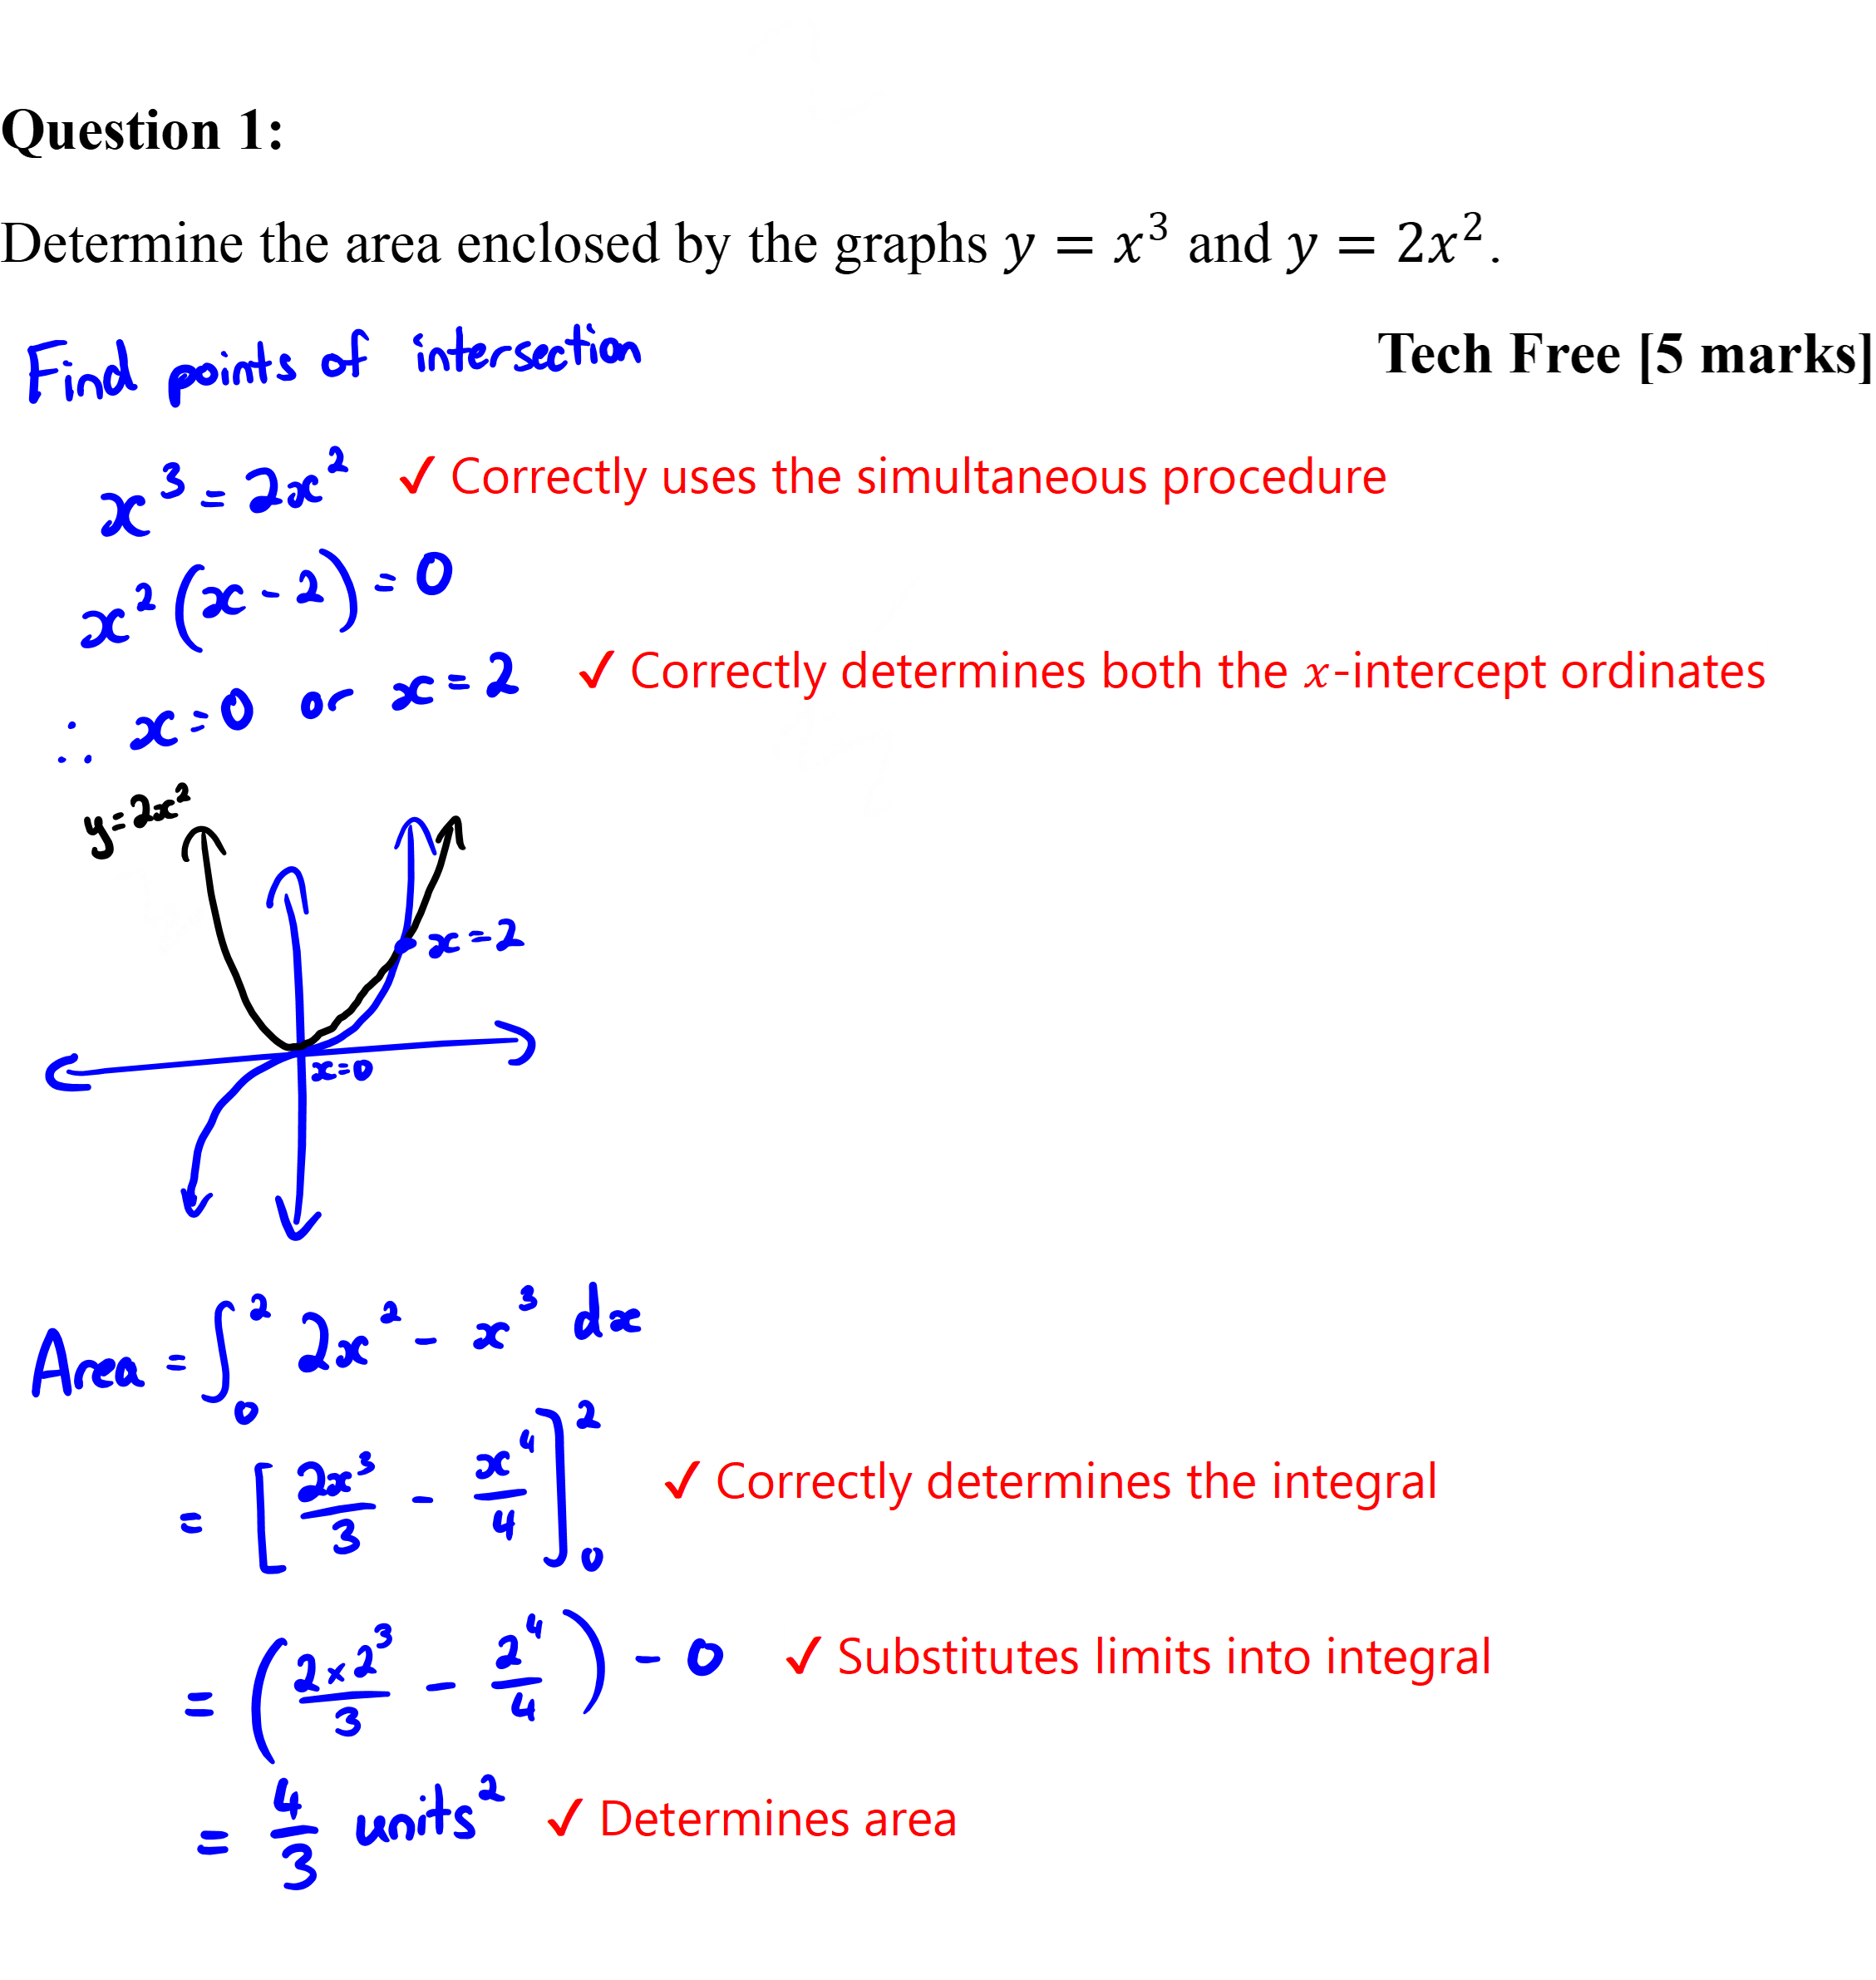 Question 1:
Determine the area enclosed by the graphs y = x³ and y = 2x².
Find points of intersection
Tech Free [5 marks]
x³ = 2x² ✓ Correctly uses the simultaneous procedure
x²(x - 2) = 0
∴ x = 0 or x = 2 ✓ Correctly determines both the x-intercept ordinates
y = 2x²
x = 2
x = 0
Area = ∫₀² 2x² - x³ dx
= [2x³/3 - x⁴/4]₀² ✓ Correctly determines the integral
= (2×2³/3 - 2⁴/4) - 0 ✓ Substitutes limits into integral
= 4/3 units² ✓ Determines area